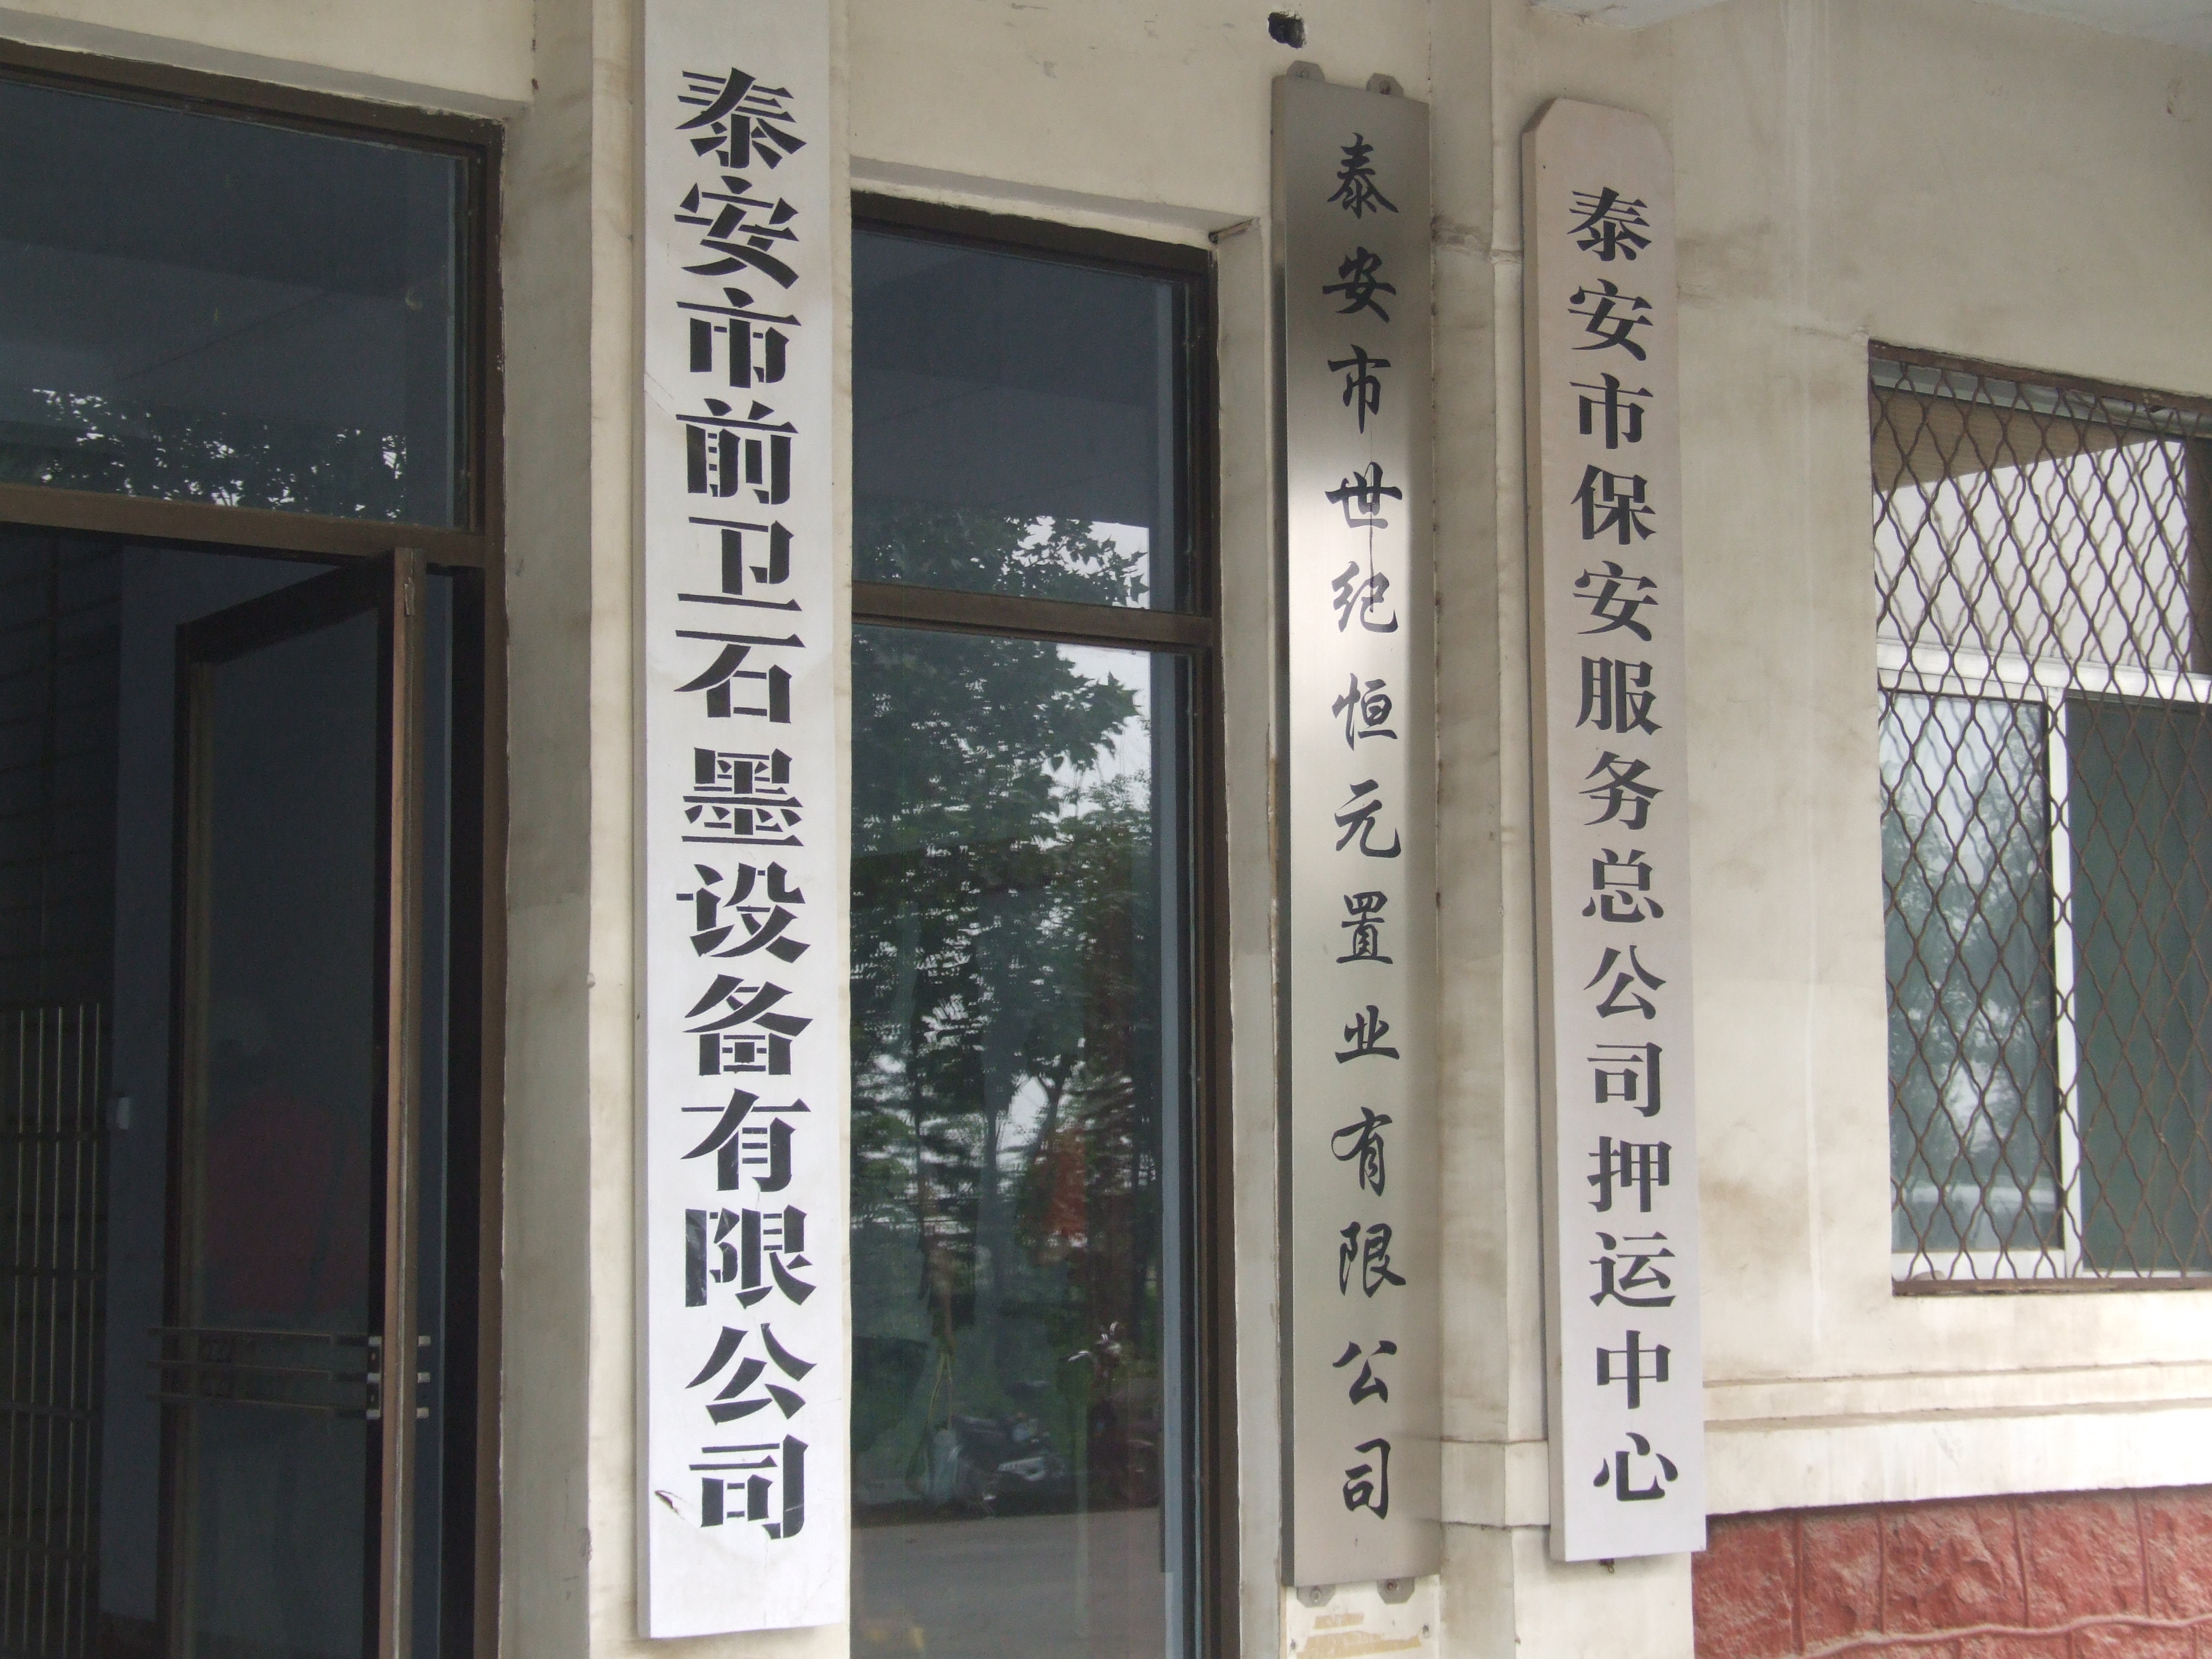 泰安市前卫石墨设备有限公司
泰安市世纪恒元置业有限公司
泰安市保安服务总公司押运中心